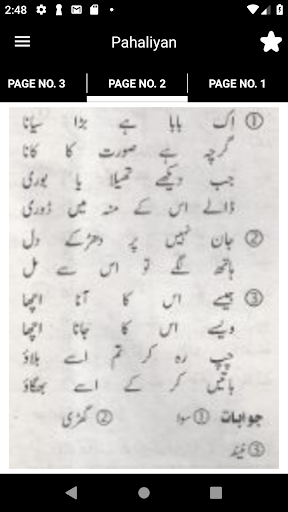 2:48
Pahaliyan
PAGE NO. 3
PAGE NO. 2
PAGE NO. 1
① اک بابا ہے بڑا سیانا
گرچہ ہے صورت کا کانا
جب دیکھے تھیلا یا بوری
ڈالے اس کے منہ میں ڈوری
② جان نہیں پر دھڑکے دل
ہاتھ لگے تو اس سے مل
③ جیسے اس کا آنا اچھا
ویسے اس کا جانا اچھا
چپ رہ کر تم اسے بلاؤ
باتیں کر کے اسے بھگاؤ
جوابات ① سوا ② گھڑی
③ نیند